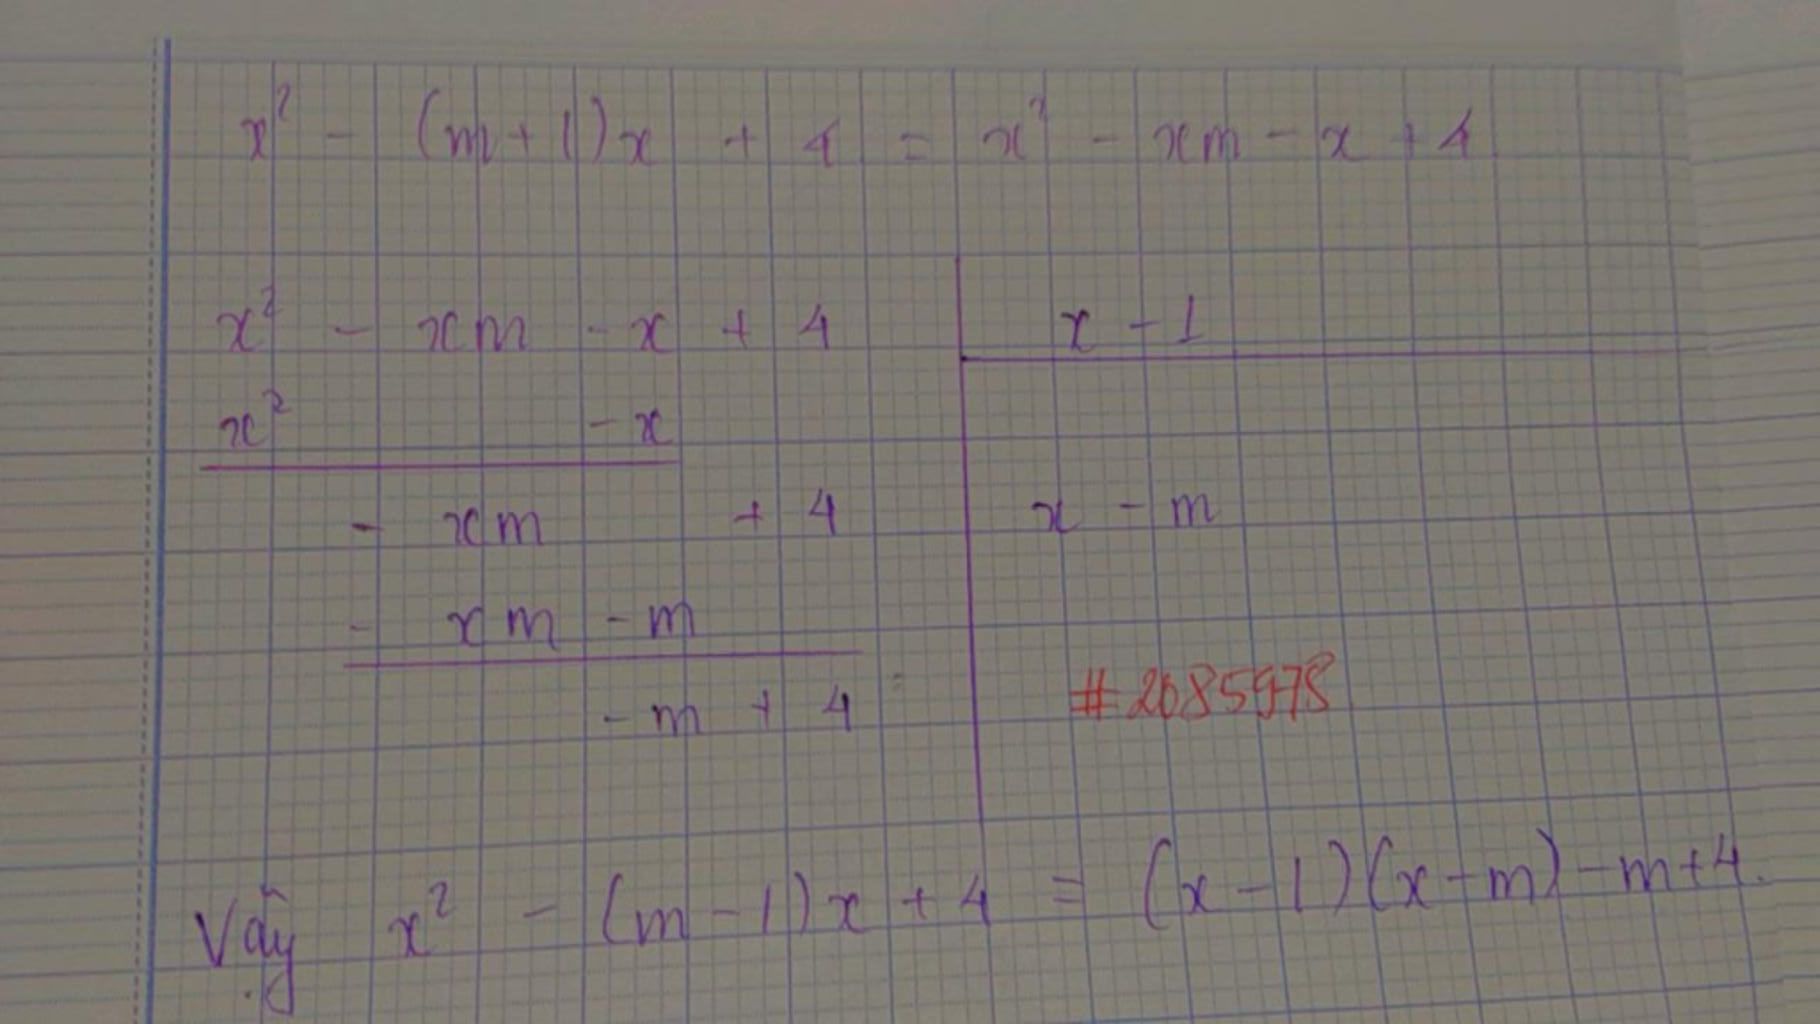 x² - (m+1)x + 4 = x² - xm - x + 4
x² - xm - x + 4 x - 1
x² - x
- xm + 4 x - m
- xm - m
- m + 4 #2085978
Vậy x² - (m-1)x + 4 = (x-1)(x-m)-m+4.